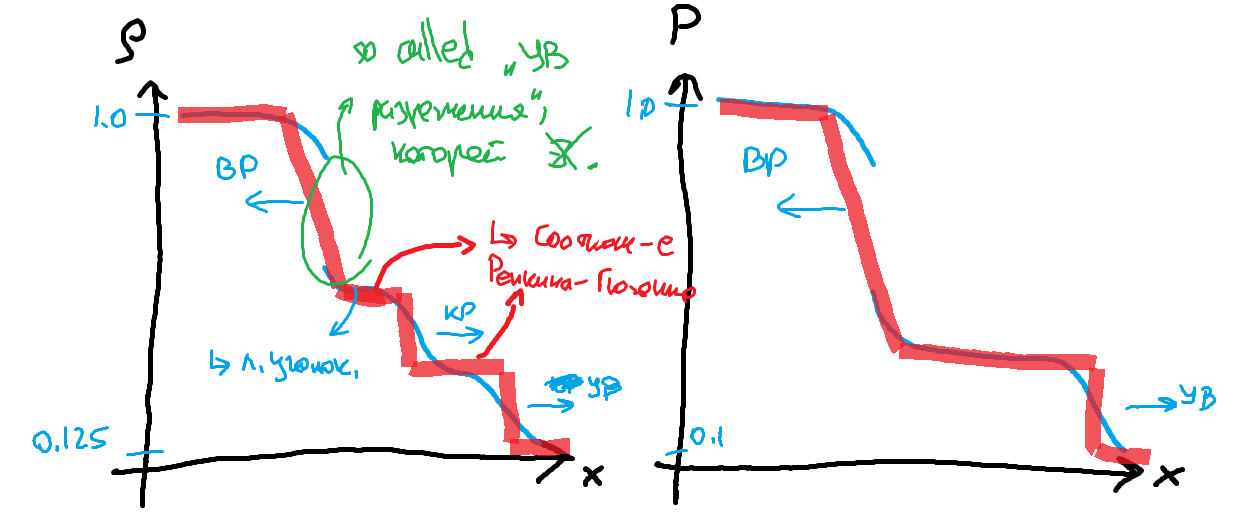 ρ
so called "УВ
разрежения",
которой ∄.
1.0
ВР
↳ Соотнош-е
Ренкина-Гюгонио
КР
↳ л. уголок.
УВ
0.125
x
P
1.0
ВР
УВ
0.1
x